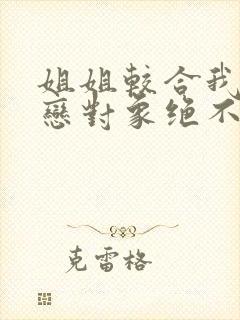 姐姐較合我
戀對象绝不
克雷格